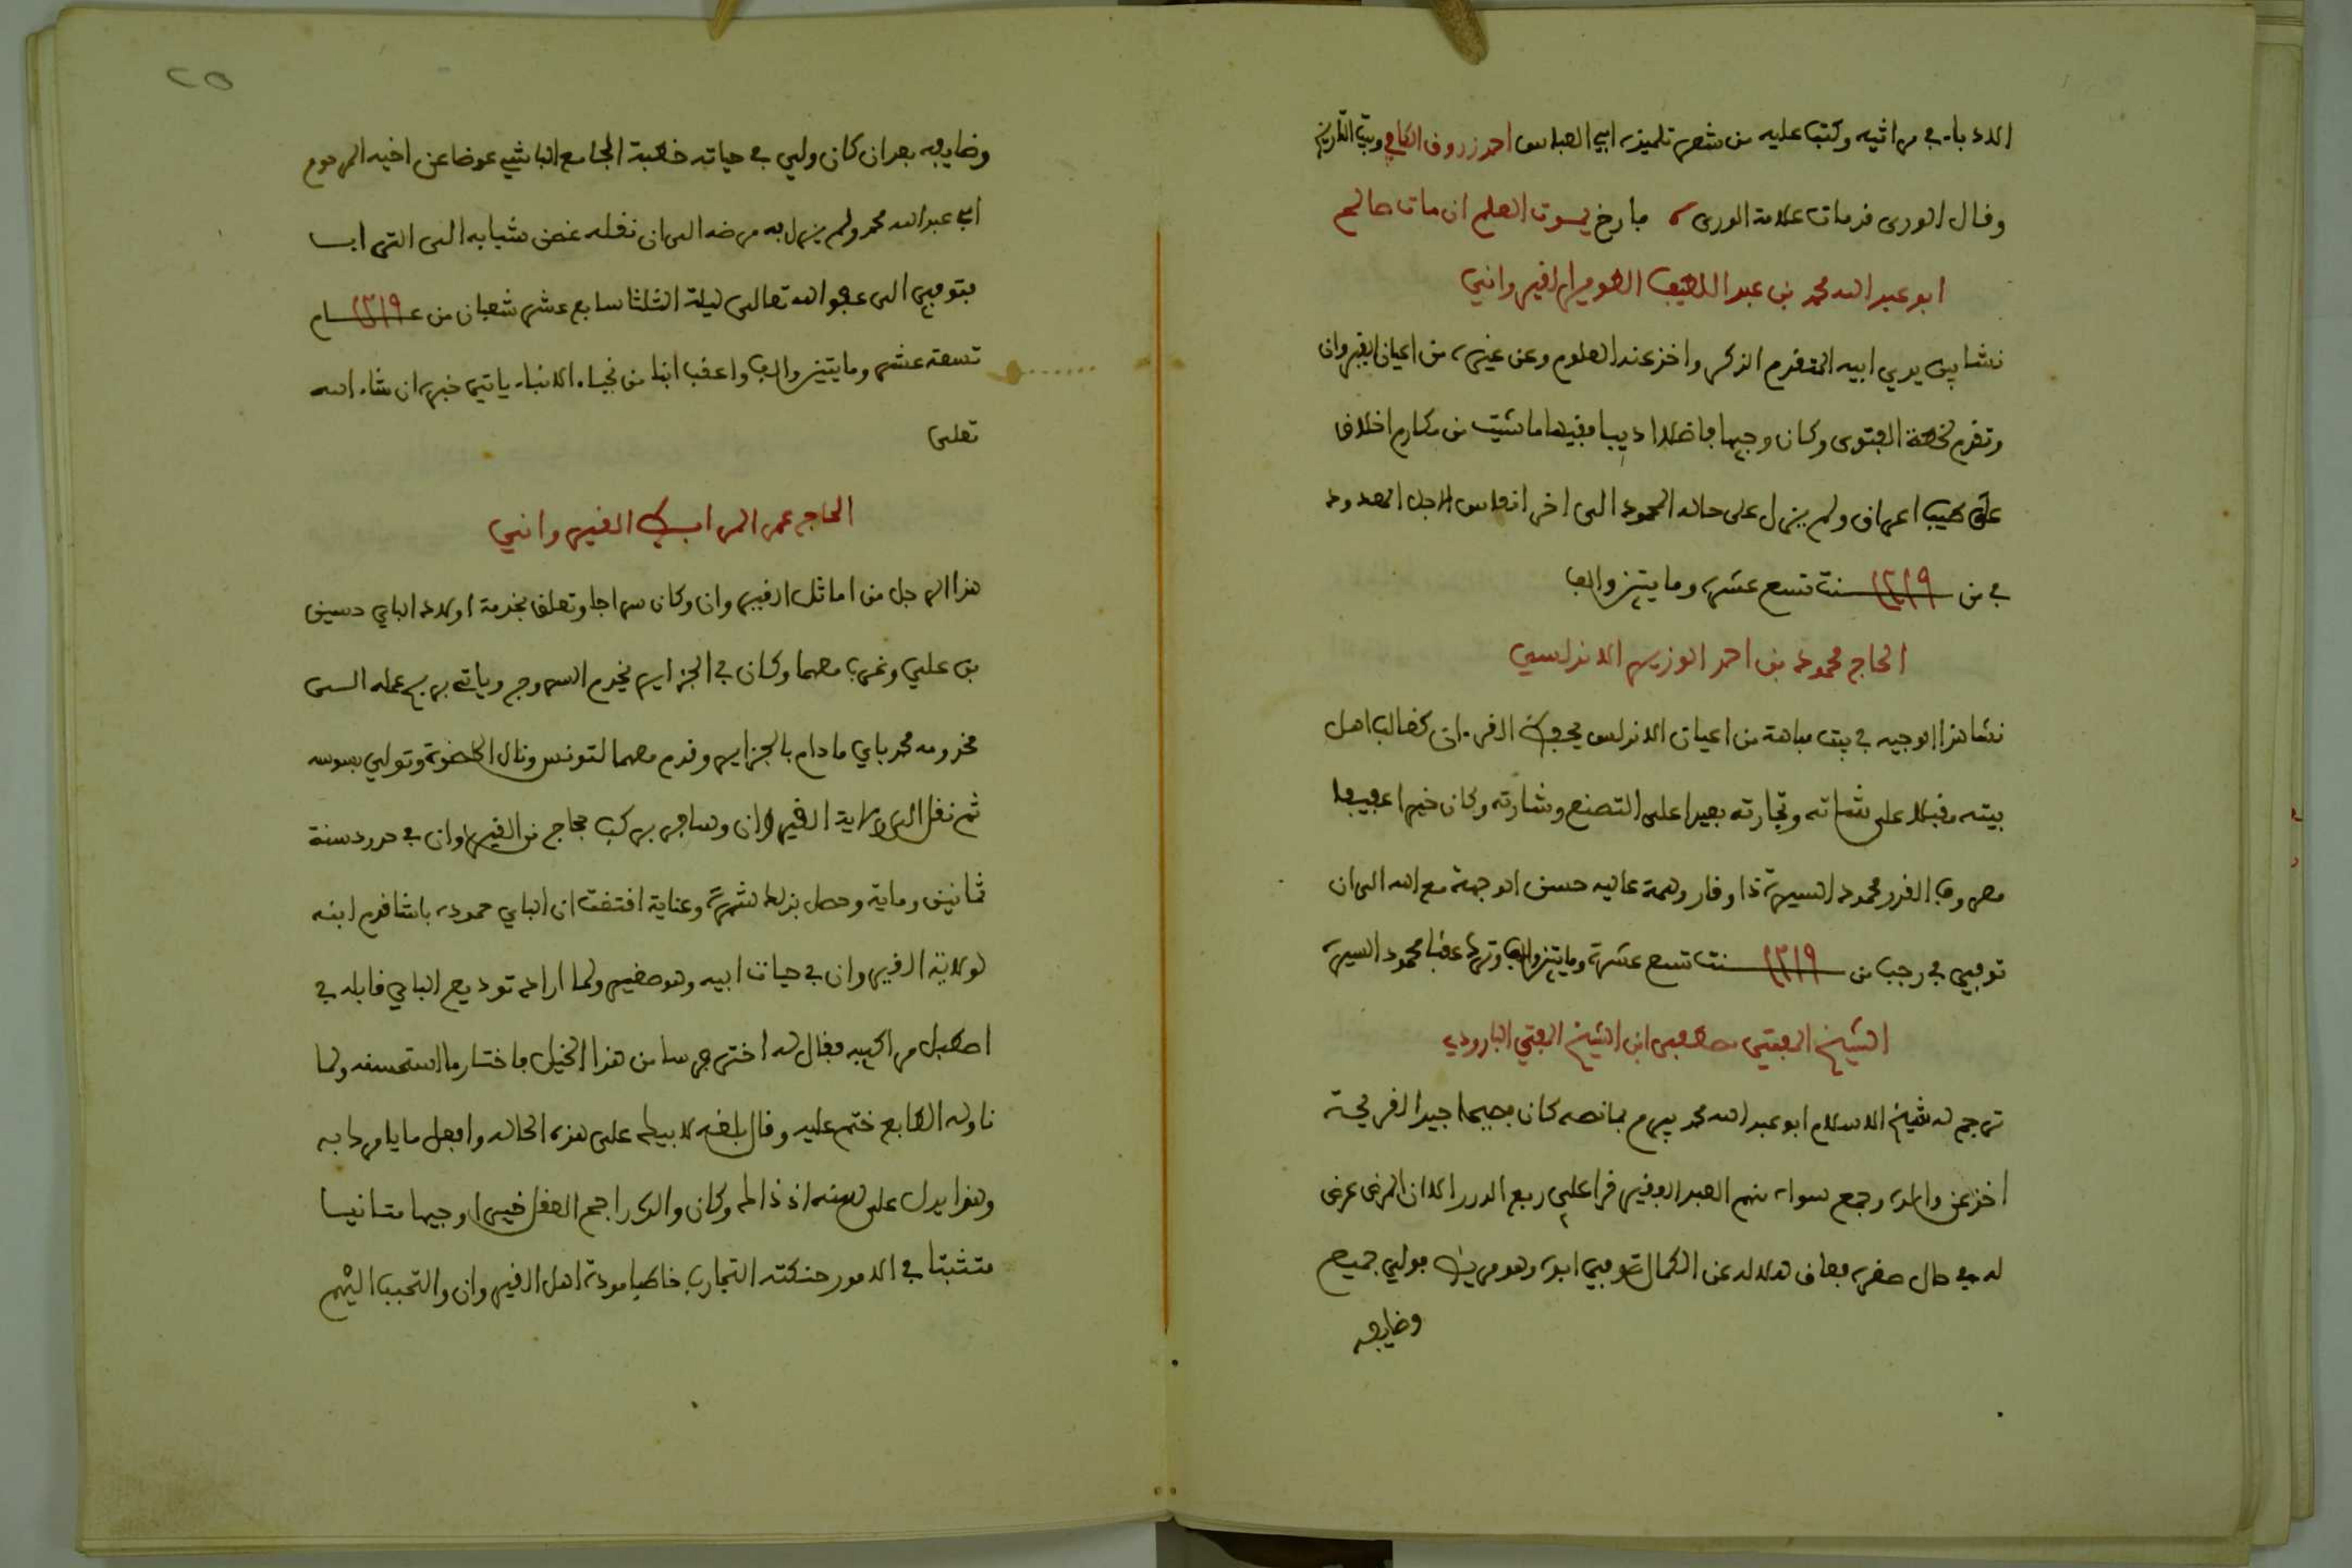 الادباء في مراثيه وكتب عليه من شعر تلميذه ابي العباس احمد زروق الكافي وبيت التاريخ
وقال الورى قد مات علامة الورى فارخ يموت العلم ان مات صالح
ابو عبد الله محمد بن عبد اللطيف الطوير القيرواني
نشا بين يدي ابيه المتقدم الذكر واخذ عنه العلوم وعن غيره من اعيان القيروان
وتقدم لخطة الفتوى وكان وجيها فاضلا اديبا فقيها ما شيت من مكارم اخلاق
على طيب اعراق ولم يزل على حاله المحمود الى اخر انفاس الاجل المعدود
في من ١٢١٩ سنت تسع عشرة ومايتين والف
الحاج محمود بن احمد الوزير الاندلسي
نشا هذا الوجيه في بيت نباهة من اعيان الاندلس يحفظ القرءان كغالب اهل
بيته مقبلا على شماته وتجارته بعيدا على التصنع وشارته وكان خيرا عفيفا
معروف القدر محمود السيرة ذا وقار وهمة عاليه حسن الوجهة مع الله الى ان
توفي في رجب من ١٢١٩ سنت تسع عشرة ومايتين والف وترك عقبا محمود السيرة
الشيخ المفتي مصطفى ابن الشيخ المفتي البارودي
ترجم له شيخ الاسلام ابو عبد الله محمد بيرم بما نصه كان فصيحا جيد القريحة
اخذ عن والده وجمع سواه منهم العبد الفقير قرا علي ربع الدرر الا ان المرض عرض
له في حال صغره فعاق هلاله عن الكمال توفي ابوه وهو مريض فولي جميع
وضايفه
٢٥
وضايفه بعد ان كان ولي في حياته خطبة الجامع الباشي عوضا عن اخيه المرحوم
ابي عبد الله محمد ولم يزل به مرضه الى ان نقله غض شبابه الى الثرى
فتوفي الى عفو الله تعالى ليلة الثلثا سابع عشر شعبان من عام ١٢١٩
تسعة عشر ومايتين والف واعقب ابنا من نجباء الابناء ياتي خبره ان شاء الله
تعلى
الحاج عمر المرابط القيرواني
هذا الرجل من اماثل القيروان وكان سراجا وتعلق بخدمة اولاد الباي حسين
بن علي وتغرب معهما وكان في الجزاير يخدم السروج وياتي بربح عمله الى
مخدومه محمد باي ما دام بالجزاير وقدم معهما لتونس ونال الحضوة وتولي بسوسه
ثم نقل الى ولاية القيروان وسافر بركب حجاج من القيروان في حدود سنة
ثمانين وماية وحصل بذلك شهرة وعناية اقتضت ان الباي حموده باشا قدم ابنه
لولاية القيروان في حيات ابيه وهو صغير ولما اراد توديع الباي قابله في
اصطبل مراكيبه فقال له اختر فرسا من هذا الخيل فاختار ما استحسنه ولما
ناوله الطابع ختم عليه وقال بلغه لابيك على هذه الحاله وافعل ما يامرك به
وهذا يدل على سنه اذ ذاك وكان والده راجح العقل خيرا وجيها متانيا
متثبتا في الامور حنكته التجارب خاطبا مودة اهل القيروان والتحبب اليهم